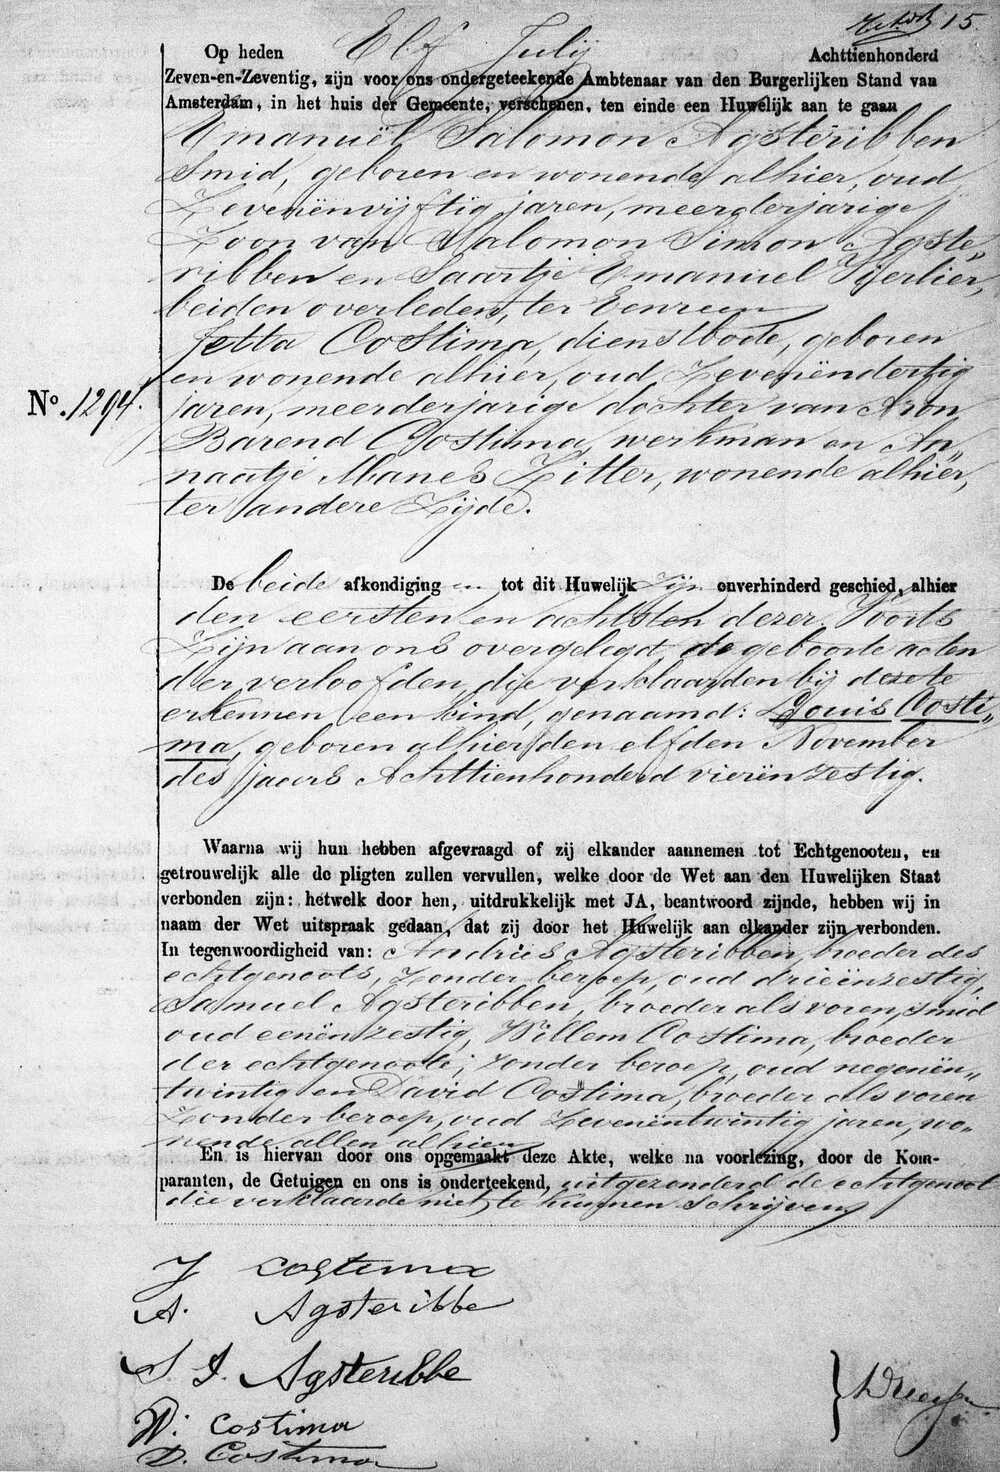 15.
Op heden Elf Julij Achttienhonderd
Zeven-en-Zeventig, zijn voor ons ondergeteekende Ambtenaar van den Burgerlijken Stand van
Amsterdam, in het huis der Gemeente, verschenen, ten einde een Huwelijk aan te gaan
Emanuël Salomon Agsteribben
Smid, geboren en wonende alhier, oud
Zevenënvijftig jaren, meerderjarige
Zoon van Salomon Simon Agste„
ribben en Saartje Emanuel
beiden overleden, ter Eenre en
Jetta Costima, dienstbode, geboren
en wonende alhier, oud Zevenëndertig
No. 1294.
jaren, meerderjarige dochter van Aron
Barend Costima, werkman en An„
naatje Manes Zitter, wonende alhier,
ter andere Zijde.
De beide afkondigingen tot dit Huwelijk Zijn onverhinderd geschied, alhier
den eersten en achtsten dezer. Voorts
Zijn aan ons overgelegd de geboorte acten
der verloofden, die verklaarden bij deze te
erkennen een kind, genaamd: Louis Costi„
ma, geboren alhier den elfden November
des jaars Achttienhonderd vierënzestig.
Waarna wij hun hebben afgevraagd of zij elkander aannemen tot Echtgenooten, en
getrouwelijk alle de pligten zullen vervullen, welke door de Wet aan den Huwelijken Staat
verbonden zijn: hetwelk door hen, uitdrukkelijk met JA, beantwoord zijnde, hebben wij in
naam der Wet uitspraak gedaan, dat zij door het Huwelijk aan elkander zijn verbonden.
In tegenwoordigheid van: Andries Agsteribben, broeder des
echtgenoots, zonder beroep, oud drieënzestig,
Samuel Agsteribben, broeder als voren, smid
oud eenënzestig, Willem Costima, broeder
der echtgenoote, zonder beroep, oud negenën„
twintig en David Costima, broeder als voren
Zonder beroep, oud Zevenëntwintig jaren, wo„
nende allen alhier
En is hiervan door ons opgemaakt deze Akte, welke na voorlezing, door de Kom-
paranten, de Getuigen en ons is onderteekend, uitgezonderd de echtgenoot
die verklaarde niet te kunnen schrijven
J Costima
A. Agsteribbe
S. S. Agsteribbe
W. Costima
D. Costima